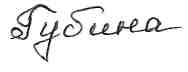 Губина